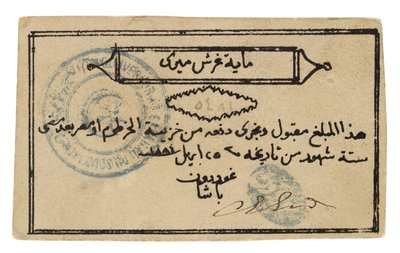 ماية غرش ميرى
هذا المبلغ مقبول ويجرى دفعه من خزينة الخرطوم او مصر بعد مضى
ستة شهور من تاريخه ٢٥ ابريل
غوردون
باشا